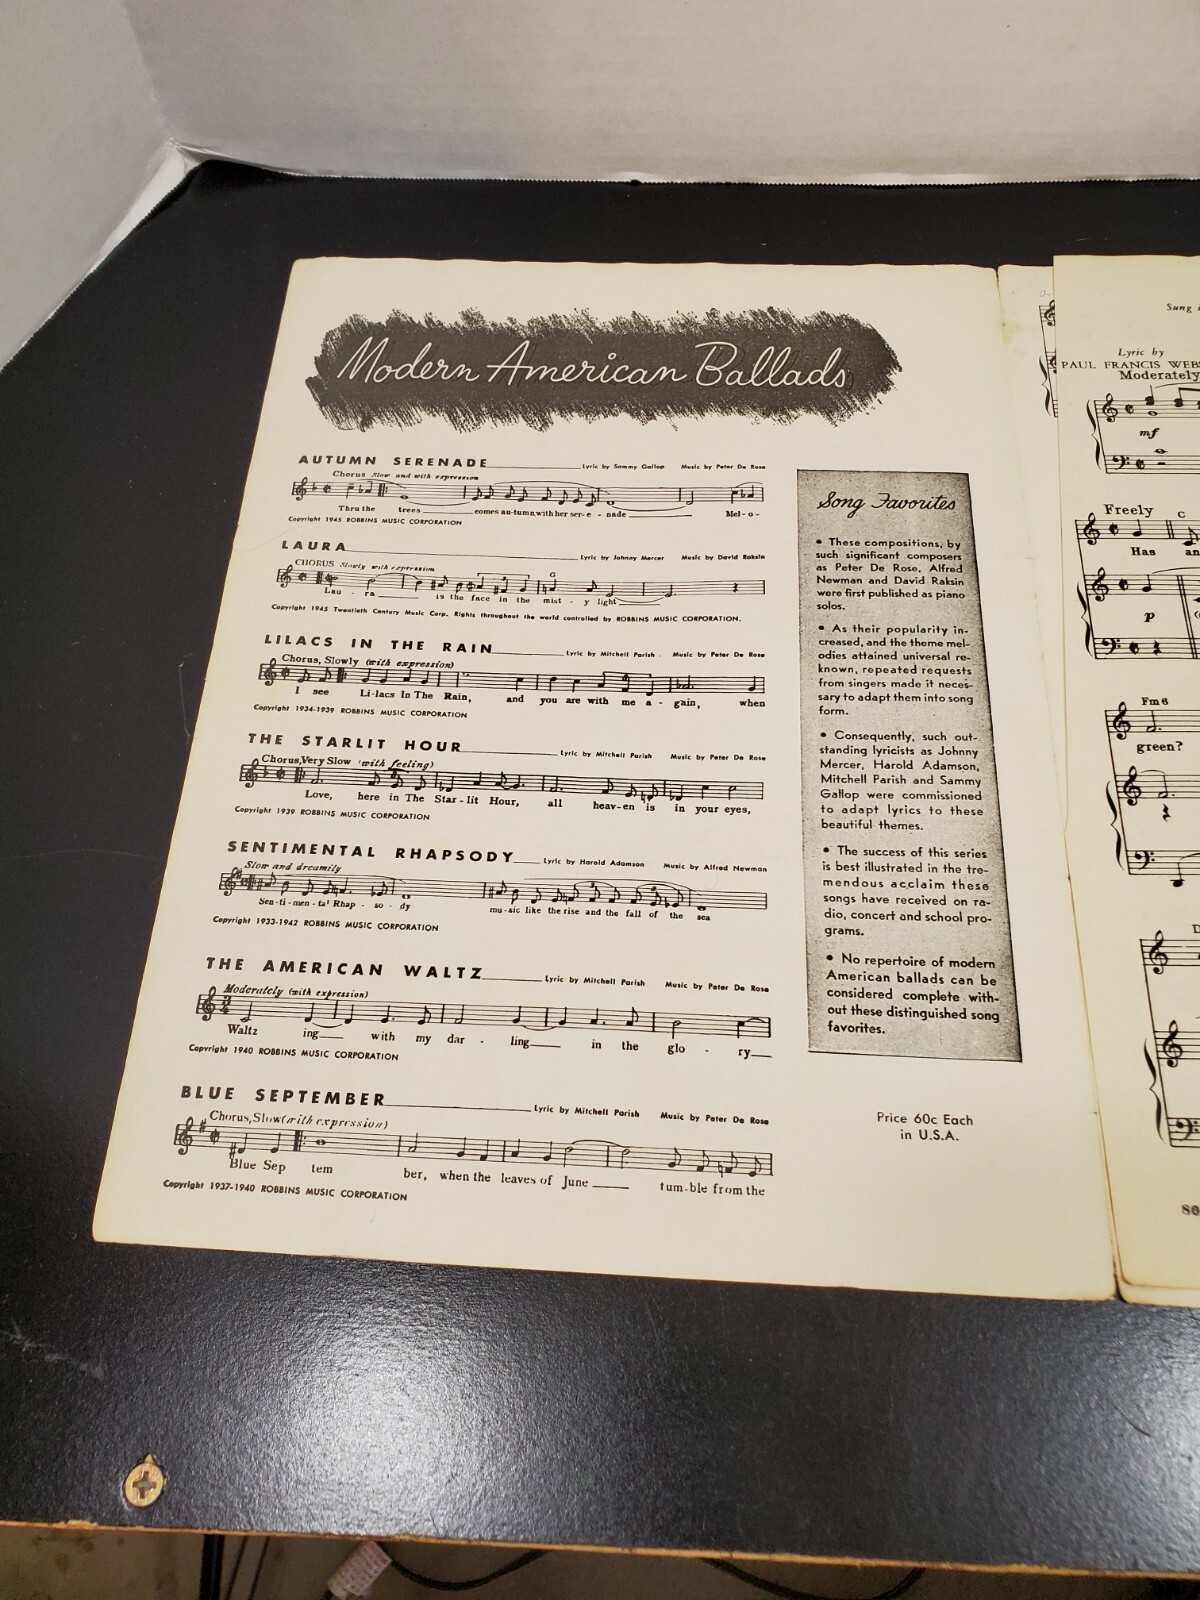 Modern American Ballads
AUTUMN SERENADE Lyric by Sammy Gallop Music by Peter De Rose
Chorus Slow and with expression
Thru the trees comes au-tumn, with her ser-e - nade Mel-o-
Copyright 1945 ROBBINS MUSIC CORPORATION
LAURA Lyric by Johnny Mercer Music by David Raksin
CHORUS Slowly with expression
G
Lau - ra is the face in the mist - y light
Copyright 1945 Twentieth Century Music Corp. Rights throughout the world controlled by ROBBINS MUSIC CORPORATION.
LILACS IN THE RAIN Lyric by Mitchell Parish . Music by Peter De Rose
Chorus, Slowly (with expression)
I see Li-lacs In The Rain, and you are with me a - gain, when
Copyright 1934-1939 ROBBINS MUSIC CORPORATION
THE STARLIT HOUR Lyric by Mitchell Parish Music by Peter De Rose
Chorus, Very Slow (with feeling)
Love, here in The Star-lit Hour, all heav-en is in your eyes,
Copyright 1939 ROBBINS MUSIC CORPORATION
SENTIMENTAL RHAPSODY Lyric by Harold Adamson Music by Alfred Newman
Slow and dreamily
Sen-ti-men-tal Rhap - so - dy mu-sic like the rise and the fall of the sea
Copyright 1933-1942 ROBBINS MUSIC CORPORATION
THE AMERICAN WALTZ Lyric by Mitchell Parish Music by Peter De Rose
Moderately (with expression)
Waltz ing with my dar - ling in the glo - ry
Copyright 1940 ROBBINS MUSIC CORPORATION
BLUE SEPTEMBER Lyric by Mitchell Parish Music by Peter De Rose
Chorus, Slow (with expression)
Blue Sep tem ber, when the leaves of June tum-ble from the
Copyright 1937-1940 ROBBINS MUSIC CORPORATION
Song Favorites
• These compositions, by
such significant composers
as Peter De Rose, Alfred
Newman and David Raksin
were first published as piano
solos.
• As their popularity in-
creased, and the theme mel-
odies attained universal re-
known, repeated requests
from singers made it neces-
sary to adapt them into song
form.
• Consequently, such out-
standing lyricists as Johnny
Mercer, Harold Adamson,
Mitchell Parish and Sammy
Gallop were commissioned
to adapt lyrics to these
beautiful themes.
• The success of this series
is best illustrated in the tre-
mendous acclaim these
songs have received on ra-
dio, concert and school pro-
grams.
• No repertoire of modern
American ballads can be
considered complete with-
out these distinguished song
favorites.
Price 60c Each
in U.S.A.
Sung i
Lyric by
PAUL FRANCIS WEBS
Moderately
mf
Freely C
Has an
p
Fm6
green?
D
80